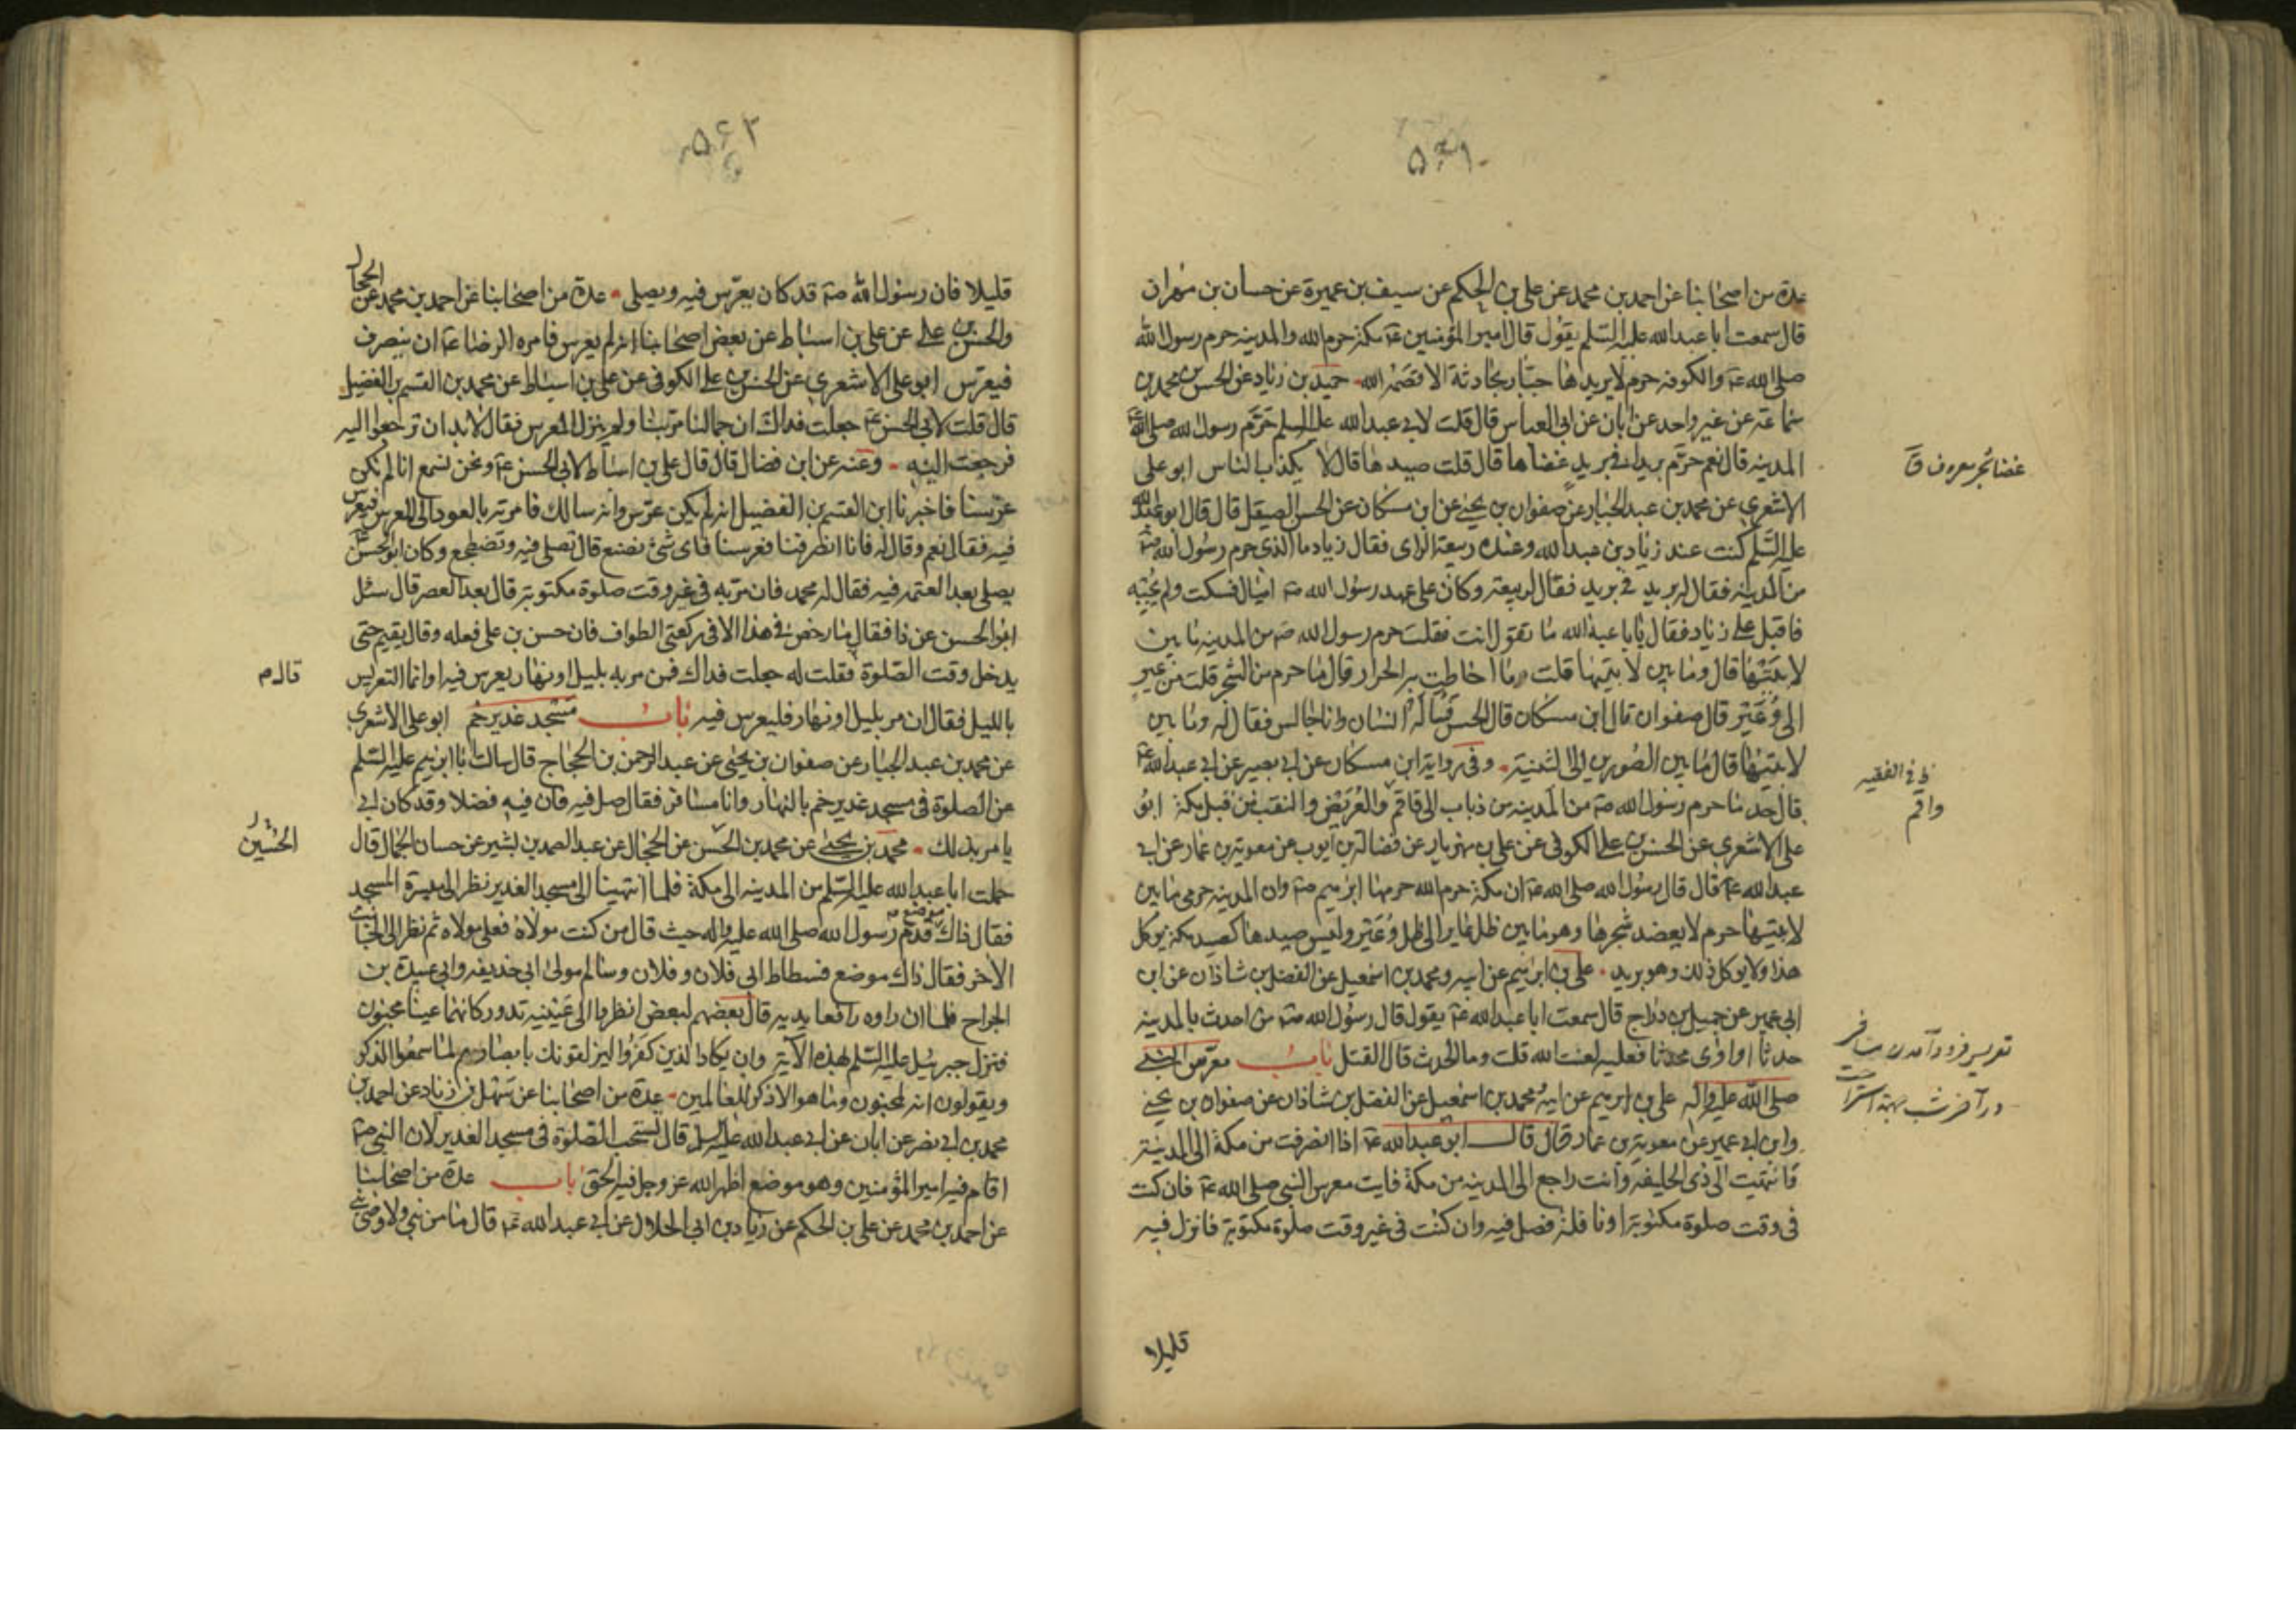 عدة من اصحابنا عن احمد بن محمد عن علي بن الحكم عن سيف بن عميرة عن حسان بن مهران
قال سمعت ابا عبد الله عليه السلم يقول قال امير المؤمنين عه مكة حرم الله والمدينه حرم رسول الله
صلى الله عه والكوفه حرمي لا يريدها جبار بحادثة الا قصمه الله حميد بن زياد عن الحسن بن محمد بن
سماعة عن غير واحد عن ابان عن ابي العباس قال قلت لابي عبد الله عليه السلم حرّم رسول الله صلى الله عه
المدينه قال نعم حرّم بريدا في بريد غضاها قال قلت صيدها قال لا يكذب الناس ابو علي
غضا شجر معروف
الاشعري عن محمد بن عبد الجبار عن صفوان بن يحيى عن ابن مسكان عن الحسن الصيقل قال قال ابو عبد الله
عليه السلم كنت عند زياد بن عبد الله وعنده ربيعة الراى فقال زياد ما الذى حرم رسول الله صه
من المدينه فقال له بريد في بريد فقال لربيعة وكان على عهد رسول الله صه اميال فسكت ولم يجبه
فاقبل على زياد فقال يا ابا عبد الله ما تقول انت فقلت حرم رسول الله صه من المدينه ما بين
لابتيها قال وما بين لابتيها قلت ما احاطت به الحرار قال ما حرم من الشجر قلت من عير
الى وعير قال صفوان قال ابن مسكان قال الحسن فساله انسان وانا جالس فقال له وما بين
لابتيها قال ما بين الصورين الى الثنية وفى رواية ابن مسكان عن ابي بصير عن ابي عبد الله عه
في الفقيه
واقم
قال حد ما حرم رسول الله صه من المدينه من ذباب الى قاقم والعريض والنقب من قبل مكة ابو
علي الاشعري عن الحسن بن علي الكوفى عن علي بن مهزيار عن فضالة بن ايوب عن معوية بن عمار عن ابي
عبد الله عه قال قال رسول الله صلى الله عه ان مكة حرم الله حرمها ابرهيم صه وان المدينه حرمى ما بين
لابتيها حرم لا يعضد شجرها وهو ما بين ظل عاير الى ظل وعير وليس صيدها كصيد مكة يوكل
هذا ولا يوكل ذلك وهو بريد علي بن ابرهيم عن ابيه ومحمد بن اسمعيل عن الفضل بن شاذان عن ابن
ابي عمير عن جميل بن دراج قال سمعت ابا عبد الله عه يقول قال رسول الله صه من احدث بالمدينه
حدثا او اوى محدثا فعليه لعنت الله قلت وما الحدث قال القتل باب معرّس النبي
تعريس فرود آمدن مسافر
در آخر شب بجهة استراحت
صلى الله عليه واله علي بن ابرهيم عن ابيه ومحمد بن اسمعيل عن الفضل بن شاذان عن صفوان بن يحيى
وابن ابي عمير عن معوية بن عمار قال قال ابو عبد الله عه اذا انصرفت من مكة الى المدينة
فانتهيت الى ذى الحليفة وانت راجع الى المدينه من مكة فايت معرس النبي صلى الله عه فان كنت
فى وقت صلوة مكتوبة او نافلة فصل فيه وان كنت فى غير وقت صلوة مكتوبة فانزل فيه
قليلا
۵۶۳
قليلا فان رسول الله صه قد كان يعرّس فيه ويصلى عدة من اصحابنا عن احمد بن محمد عن الحجال
والحسن بن علي عن علي بن اسباط عن بعض اصحابنا انه لم يعرس فامره الرضا عه ان ينصرف
فيعرّس ابو علي الاشعري عن الحسن بن علي الكوفى عن علي بن اسباط عن محمد بن القسم بن الفضيل
قال قلت لابي الحسن عه جعلت فداك ان جمالنا مرّ بنا ولم ينزل المعرس فقال لا بد ان ترجعوا اليه
فرجعت اليه وعنه عن ابن فضال قال قال علي بن اسباط لابي الحسن عه ونحن نسمع انا لم نكن
عرّسنا فاخبرنا ابن القسم بن الفضيل انه لم يكن عرّس وانه سالك فامرته بالعود الى المعرس فيعرس
فيه فقال نعم وقال له فانا انصرفنا فعرسنا فاى شئ نصنع قال تصلى فيه وتضطجع وكان ابو الحسن عه
يصلى بعد العتمه فيه فقال له محمد فان مرّ به فى غير وقت صلوة مكتوبة قال بعد العصر قال سئل
ابو الحسن عن ذا فقال ما رخص فى هذا الا فى ركعتى الطواف فان حسن بن علي فعله وقال يقيم حتى
يدخل وقت الصلوة فقلت له جعلت فداك فمن مر به بليل او نهار يعرس فيه او انما التعريس
قال م
بالليل فقال ان مر بليل او نهار فليعرس فيه باب مسجد غدير خم ابو علي الاشعري
عن محمد بن عبد الجبار عن صفوان بن يحيى عن عبد الرحمن بن الحجاج قال سالت ابا ابرهيم عليه السلم
عن الصلوة فى مسجد غدير خم بالنهار وانا مسافر فقال صل فيه فان فيه فضلا وقد كان ابي
يامر بذلك محمد بن يحيى عن محمد بن الحسن عن الحجال عن عبد الصمد بن بشير عن حسان الجمال قال
الحسين
حملت ابا عبد الله عليه السلم من المدينه الى مكة فلما انتهينا الى مسجد الغدير نظر الى ميسرة المسجد
فقال ذاك موضع قدم رسول الله صلى الله عليه واله حيث قال من كنت مولاه فعلي مولاه ثم نظر الى الجانب
الآخر فقال ذاك موضع فسطاط ابى فلان وفلان وسالم مولى ابى حذيفه وابى عبيدة بن
الجراح فلما ان راوه رافعا يديه قال بعضهم لبعض انظروا الى عينيه تدور كانهما عينا مجنون
فنزل جبرئيل عليه السلم بهذه الآية وان يكاد الذين كفروا ليزلقونك بابصارهم لما سمعوا الذكر
ويقولون انه لمجنون وما هو الا ذكر للعالمين عدة من اصحابنا عن سهل بن زياد عن احمد بن
محمد بن ابي نصر عن ابان عن ابي عبد الله عليه السلم قال يستحب الصلوة فى مسجد الغدير لان النبي صه
اقام فيه امير المؤمنين وهو موضع اظهر الله عز وجل فيه الحق باب عدة من اصحابنا
عن احمد بن محمد عن علي بن الحكم عن زياد بن ابى الحلال عن ابي عبد الله عه قال ما من نبي ولا وصى نبي